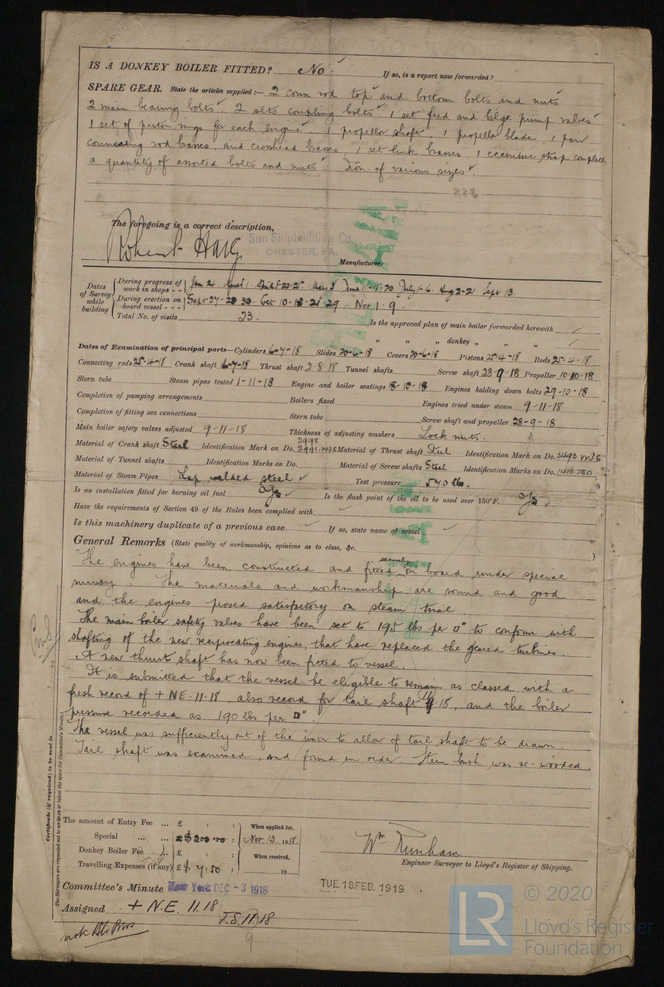 IS A DONKEY BOILER FITTED? No. If so, is a report now forwarded?
SPARE GEAR. State the articles supplied:— 2 conn rod top and bottom bolts and nuts
2 main bearing bolts 2 sets coupling bolts 1 set feed and bilge pump valves
1 set of piston rings for each engine 1 propeller shaft 1 propeller blade 1 pair
connecting rod brasses, and crosshead brasses 1 set link brasses, 1 eccentric strap complete,
a quantity of assorted bolts and nuts Iron of various sizes
The foregoing is a correct description,
Sun Shipbuilding Co.
CHESTER, PA.
Robert Haig Manufacturer.
Dates of Survey while building
During progress of work in shops - - Aug 2-21 Sept 13.
During erection on board vessel - - - Sept 27-28 30. Oct 10-18-21-29 Nov 1-9.
Total No. of visits 23. Is the approved plan of main boiler forwarded herewith
" " " donkey " " "
Dates of Examination of principal parts—Cylinders 6-7-18 Slides 20-6-18 Covers 20-6-18 Pistons 25-4-18 Rods 25-4-18
Connecting rods 25-4-18 Crank shaft 6-7-18 Thrust shaft 2-8-18 Tunnel shafts Screw shaft 28-9-18 Propeller 10-10-18
Stern tube Steam pipes tested 1-11-18 Engine and boiler seatings 18-10-18 Engines holding down bolts 29-10-18
Completion of pumping arrangements Boilers fixed Engines tried under steam 9-11-18
Completion of fitting sea connections Stern tube Screw shaft and propeller 28-9-18
Main boiler safety valves adjusted 9-11-18 Thickness of adjusting washers Lock nuts.
Material of Crank shaft Steel Identification Mark on Do. Material of Thrust shaft Steel Identification Mark on Do.
Material of Tunnel shafts Identification Marks on Do. Material of Screw shafts Steel Identification Marks on Do.
Material of Steam Pipes Lap welded steel Test pressure 540 lbs.
Is an installation fitted for burning oil fuel Is the flash point of the oil to be used over 150°F.
Have the requirements of Section 49 of the Rules been complied with
Is this machinery duplicate of a previous case If so, state name of vessel
General Remarks (State quality of workmanship, opinions as to class, &c.
The engines have been constructed and fitted on board under special
survey. The materials and workmanship are sound and good
and the engines proved satisfactory on steam trial.
The main boiler safety valves have been set to 195 lbs per □" to conform with
shafting of the new reciprocating engines, that have replaced the geared turbines.
A new thrust shaft has now been fitted to vessel.
It is submitted that the vessel be eligible to remain as classed with a
fresh record of + NE-11-18, also record for tail shaft 18, and the boiler
pressure recorded as 190 lbs per □".
The vessel was sufficiently out of the water to allow of tail shaft to be drawn.
Tail shaft was examined, and found in order. Stern bush was re-wooded
Certificate (if required) to be sent to
The amount of Entry Fee ... £ : : When applied for,
Special ... ... £ $200.00 : Nov 13 1918.
Donkey Boiler Fee ... £ : : When received,
Travelling Expenses (if any) £ $ 7.50 : 19
Engineer Surveyor to Lloyd's Register of Shipping.
Committee's Minute New York DEC - 3 1918
TUE. 18 FEB. 1919
Assigned + N.E. 11.18
T.S. 11.18
© 2020
LR
Lloyd's Register
Foundation